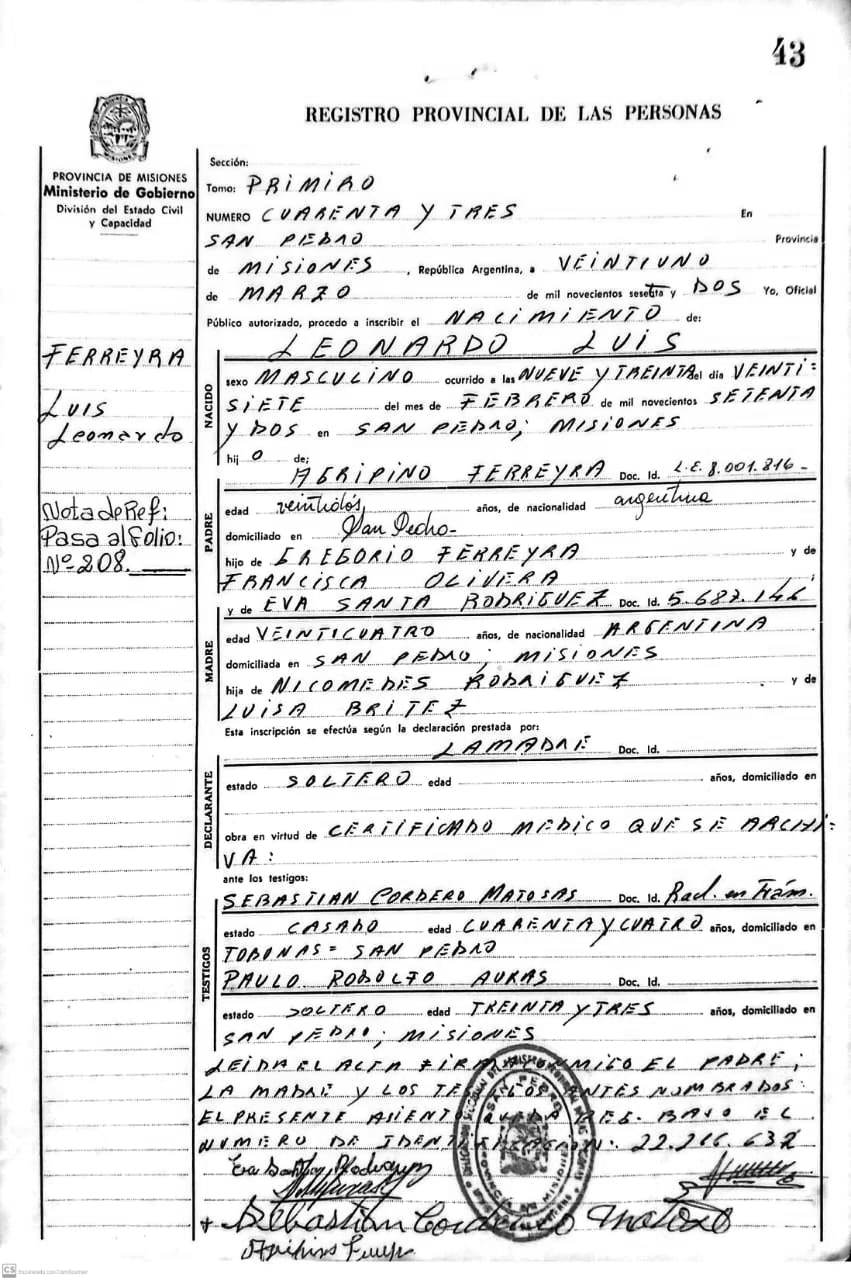 43
REGISTRO PROVINCIAL DE LAS PERSONAS
PROVINCIA DE MISIONES
Ministerio de Gobierno
División del Estado Civil
y Capacidad
FERREYRA
Luis
Leonardo
Nota de Ref:
Pasa al folio:
Nº 208.
Sección:
Tomo: PRIMIRO
NUMERO CUARENTA Y TRES En
SAN PEDRO Provincia
de MISIONES, República Argentina, a VEINTIUNO
de MARZO de mil novecientos setenta y DOS Yo, Oficial
Público autorizado, procedo a inscribir el NACIMIENTO de:
LEONARDO LUIS
NACIDO
sexo MASCULINO ocurrido a las NUEVE Y TREINTA del día VEINTI=
SIETE del mes de FEBRERO de mil novecientos SETENTA
Y DOS en SAN PEDRO; MISIONES
hijO de;
AGRIPINO FERREYRA Doc. Id. L.E. 8.001.816-
PADRE
edad veintidós años, de nacionalidad argentina
domiciliado en San Pedro-
hijo de GREGORIO FERREYRA y de
FRANCISCA OLIVERA
y de EVA SANTA RODRIGUEZ Doc. Id. 5.687.146
MADRE
edad VEINTICUATRO años, de nacionalidad ARGENTINA
domiciliada en SAN PEDRO; MISIONES
hija de NICOMEDES RODRIGUEZ y de
LUISA BRITEZ
Esta inscripción se efectúa según la declaración prestada por:
LAMADRE Doc. Id.
DECLARANTE
estado SOLTERO edad años, domiciliado en
obra en virtud de CERTIFICADO MEDICO QUE SE ARCHI=
VA:
ante los testigos:
SEBASTIAN CORDERO MATOSAS Doc. Id. Rad. en Trám.
TESTIGOS
estado CASADO edad CUARENTA Y CUATRO años, domiciliado en
TOBUNAS= SAN PEDRO
PAULO RODOLFO AURAS Doc. Id.
estado SOLTERO edad TREINTA Y TRES años, domiciliado en
SAN PEDRO; MISIONES
LEIDA EL ALTA FIRMA CONMIGO EL PADRE;
LA MADRE Y LOS ANTES NOMBRADOS:
EL PRESENTE ASIENTO REG. BAJO EL
NUMERO DE 22.216.632
SAN PEDRO
MISIONES
Sebastian Cordero Matoso
CS